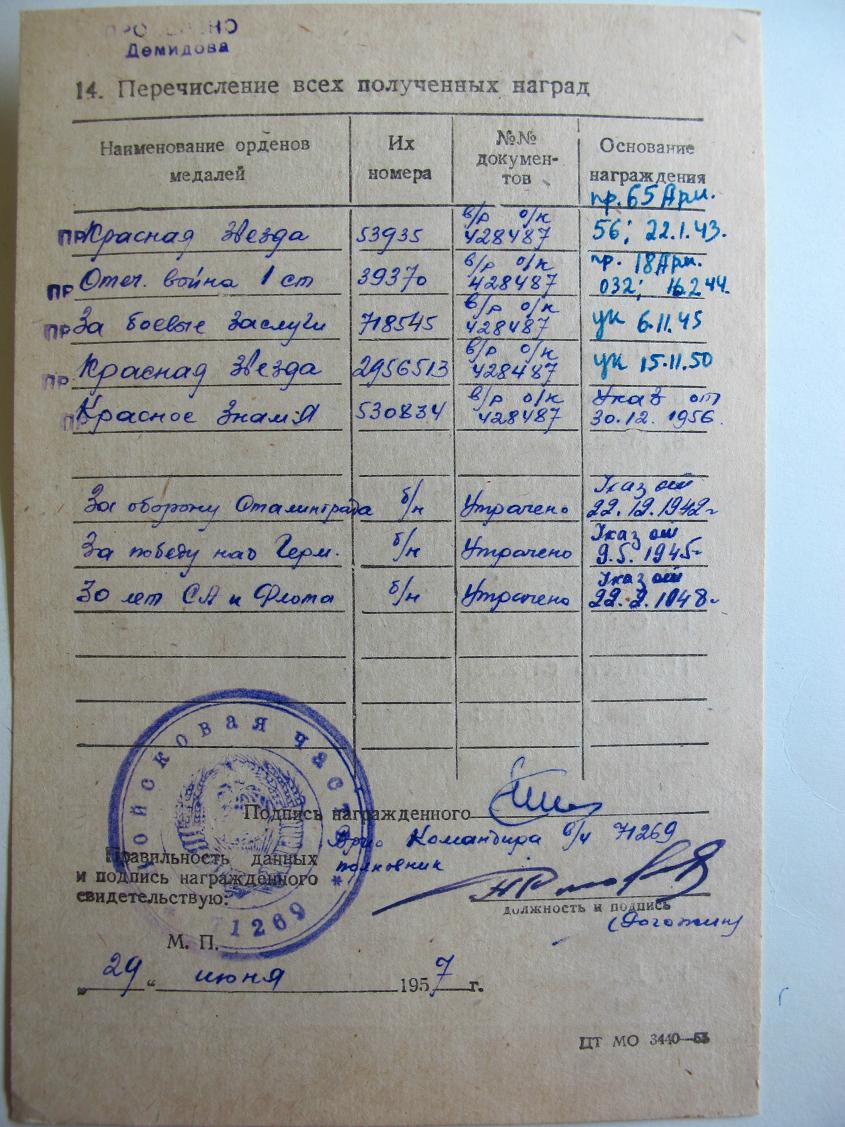 Демидова
14. Перечисление всех полученных наград
Наименование орденов медалей
Их номера
№№ документов
Основание награждения
пр Красная Звезда 53935 в/р о/к 428487 пр. 65 Арм. 56; 22.1.43.
пр Отеч. война 1 ст 39370 в/р о/к 428487 пр. 18 Арм. 032; 16.2.44.
пр За боевые заслуги 718545 в/р о/к 428487 ук 6.11.45
пр. Красная Звезда 2956513 в/р о/к 428487 ук 15.11.50
пр Красное Знамя 530834 в/р о/к 428487 Указ от 30.12.1956.
За оборону Сталинграда б/н Утрачено Указ от 22.12.1942г
За победу над Герм. б/н Утрачено Указ от 9.5.1945г
30 лет СА и Флота б/н Утрачено Указ от 22.2.1948г
войсковая часть
* 71269 *
Подпись награжденного
Врио Командира в/ч 71269
полковник
Правильность данных
и подпись награжденного
свидетельствую:
должность и подпись
М. П.
„29“ июня 1957 г.
ЦТ МО 3440—